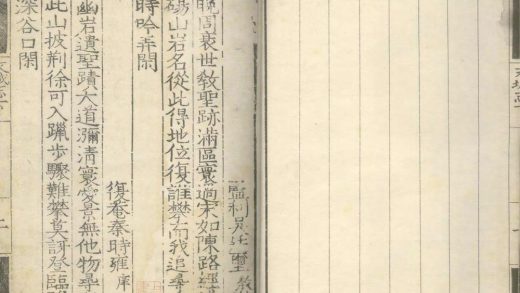 監利吳廷璽
晚周衰世敎聖跡滿區寰過宋如陳路經
碭山岩名從此得地位復誰攀而我追尋
時吟弄閑
復菴秦時雍
幽岩遺聖蹟大道瀰清寰景無他物尋
此山披荆徐可入躡步驟難攀莫訝登臨
深谷口閑